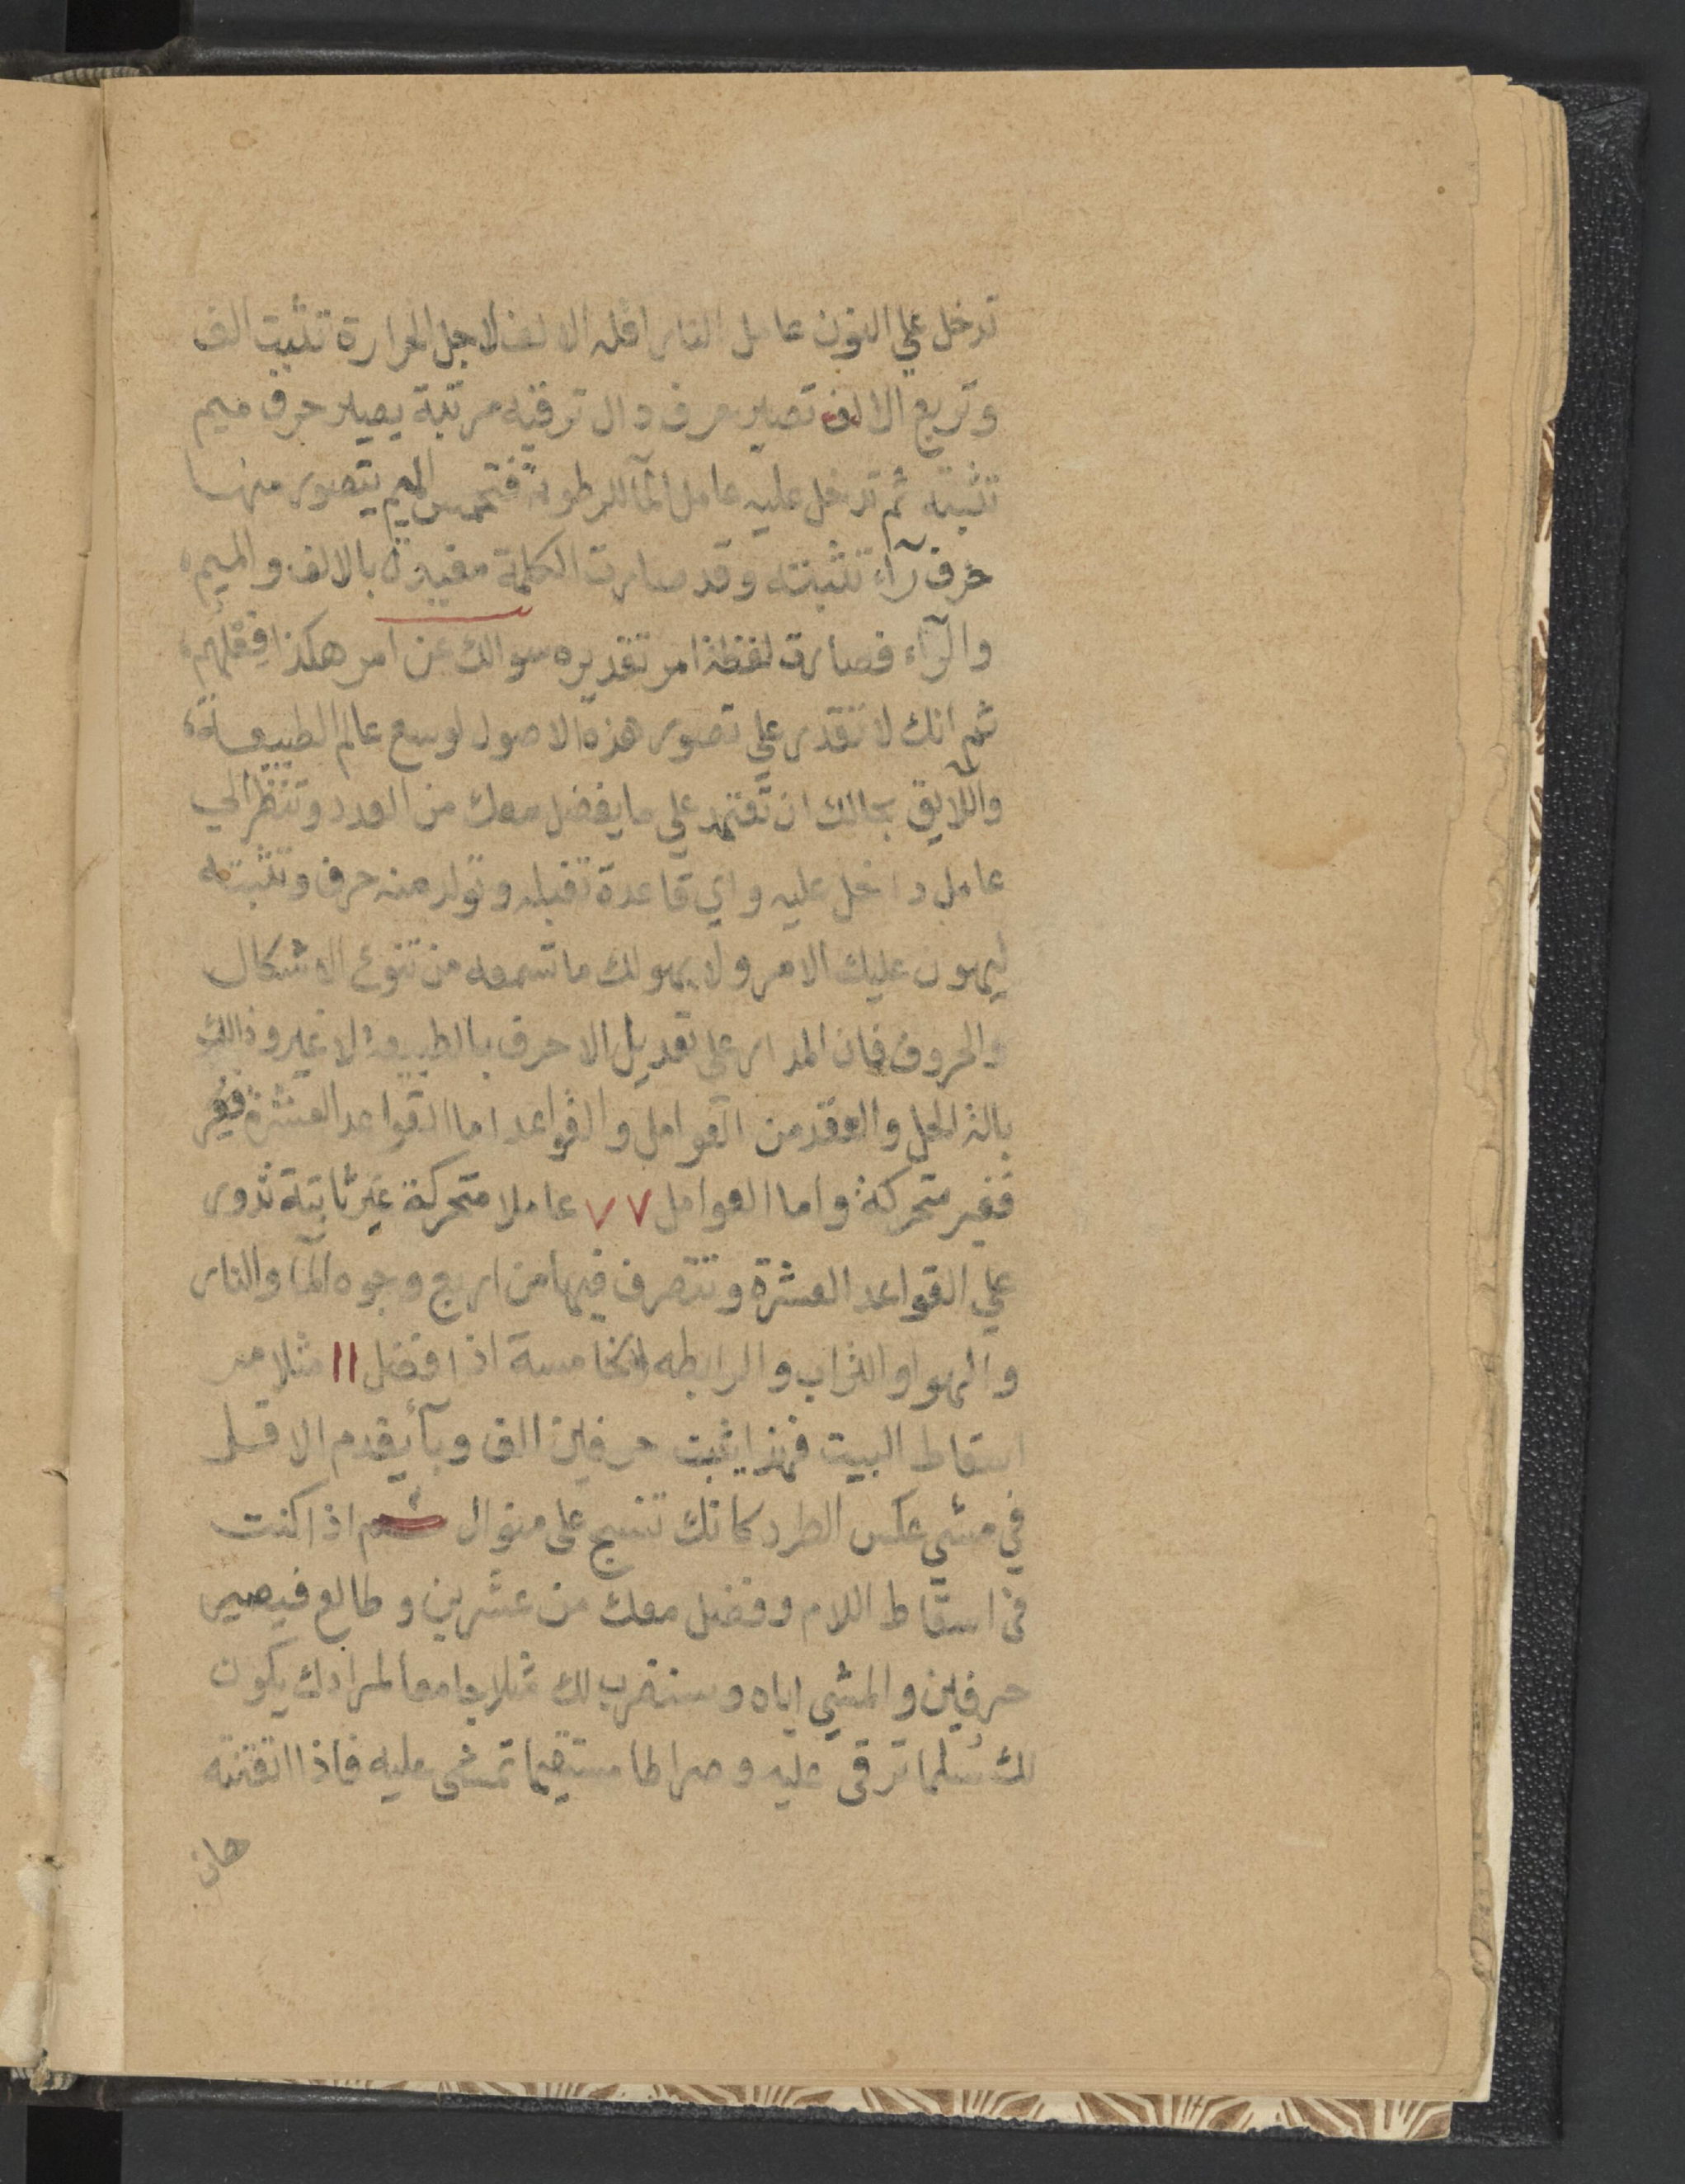 تدخل علي النون عامل النار اقله الالف لاجل الحرارة تثبت الف
وتربع الالف تصير حرف دال ترقيه مرتبة يصير حرف ميم
تثبته ثم تدخل عليه عامل المآ للرطوبة فتخمس الميم يتصور منها
حرف رآء تثبته وقد صارت الكلمة مقيدة بالالف والميم
والرآء فصارت لفظة امر تقديره سوالك عن امر هكذا فافهم
ثم انك لا تقدر علي تصور هذه الاصول لوسع عالم الطبيعة
واللايق بحالك ان تعتمد علي ما يفضل معك من العدد وتنظر الي
عامل داخل عليه واي قاعدة تقبله وتولد منه حرف وتثبته
ليهون عليك الامر ولا يهولك ما تسمعه من تنوع الاشكال
والحروف فان المدار علي تعديل الاحرف بالطبيعة لا غير وذالك
بالة الحل والعقد من العوامل والقواعد اما القواعد العشرة فغير
فغير متحركة واما العوامل ٧٧ عاملا متحركة غير ثابتة تدور
علي القواعد العشرة وتتصرف فيها من اربع وجوه المآ والنار
والهوا والتراب والرابطه الخامسة اذا فضل ١١ مثلا من
اسقاط البيت فهذا يثبت حرفين الف ويآ يقدم الاقل
في مشي عكس الطرد كانك تنسج على منوال ثم اذا كنت
في اسقاط اللام وفضل معك من عشرين وطالع فيصير
حرفين والمشي اياه وسنضرب لك مثلا جامعا لمرادك يكون
لك سلما ترقى عليه وصراطا مستقيما تمشى عليه فاذا اتقنته